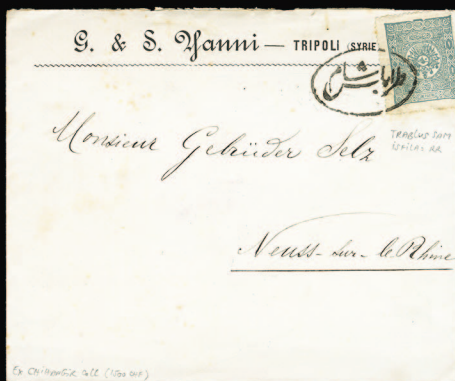 G. & S. Yanni — TRIPOLI (SYRIE
طرابلس شام
TRABLUS ŞAM
Monsieur Gebrüder Selz
Neuss-sur-le Rhine